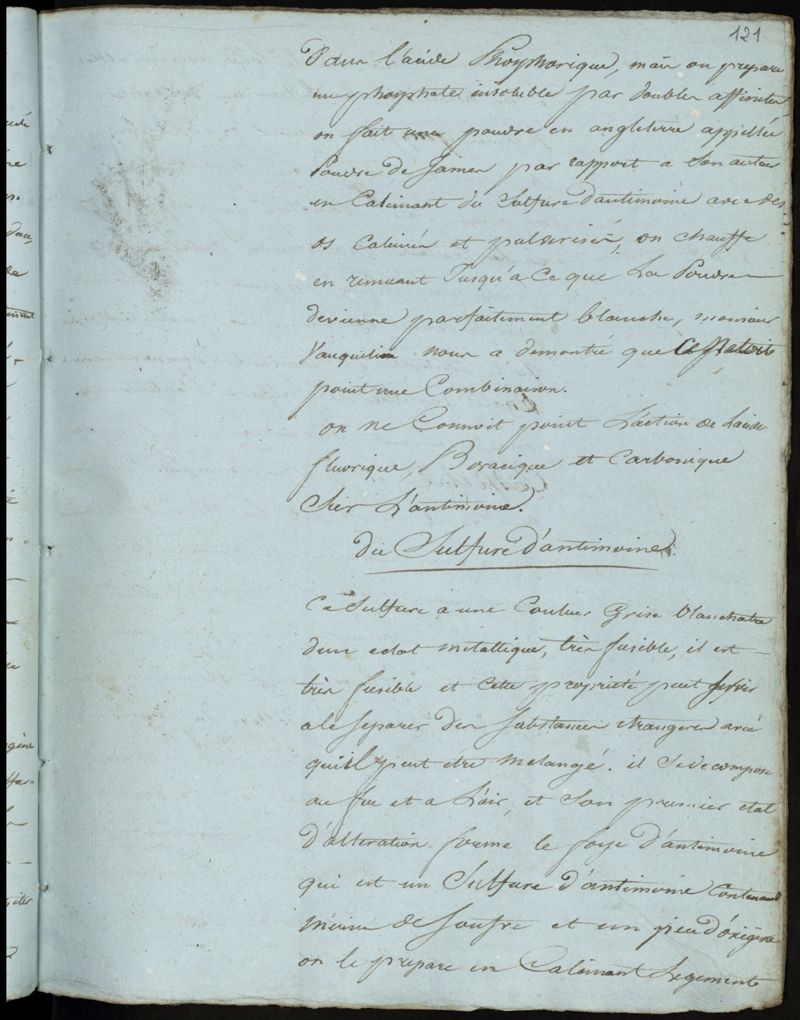 121
Dans l'acide Phosphorique, mais on prepare
un phosphate insoluble par doubles affinités
on fait une poudre en angleterre appellée
Poudre de James par rapport a son auteur
en Calcinant du Sulfure d'antimoine avec des
os Calcinés et pulverisés, on chauffe
en remuant Jusqu'a Ce que La Poudre
devienne parfaitement blanche, monsieur
Vauquelin nous a demontré que Ce n'etoit
point une Combinaison.
on ne Connoit point L'action de L'acide
fluorique, Boracique et Carbonique
Sur L'antimoine.
du Sulfure d'antimoine.
Ce Sulfure a une Couleur Grise blanchatre
d'un eclat metallique, très fusible, il est
très fusible et Cette propriété peut servir
a le Separer des Substances etrangeres avec
quil peut etre melangé. il Se decompose
au feu et a L'air, et Son premier etat
d'alteration forme le foye d'antimoine
qui est un Sulfure d'antimoine Contenant
moins de Soufre et un peu d'oxigène
on le prepare en Calcinant Legement